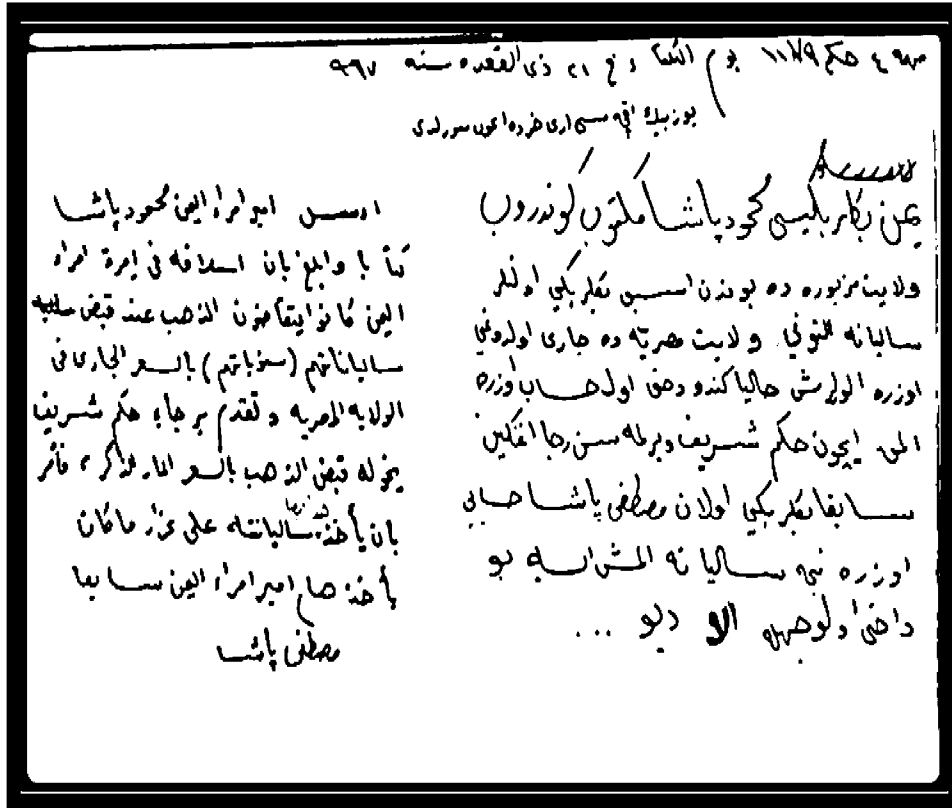 مهمه ٤ حكم ١١٧٩ يوم الثلثا ٢١ ذى القعده سنه ٩٦٧
يوز بيك اقچه ايچون
يمن بكلربكيسى محمود پاشا مكتوب كوندروب
ولايت مزبوره ده بوندن اسبق بكلربكي اولنلر
ساليانه ولايت مصريه ده جارى اولدوغي
اوزره الورلرمش حاليا كندو دخى اول حساب اوزره
المق ايچون حكم شريف ويرلمه سن رجا اتمكين
سابقا بكلربكي اولان مصطفى پاشا
اوزره نيجه ساليانه المش ايسه بو
داخى اولوجهله الا ديو ...
ارسل امير امراء اليمن محمود پاشا
كتابا وابلغ بان اسلافه في إمرة امراء
اليمن كانوا يتقاضون الذهب عند قبض
ساليانتهم (سنوياتهم) بالسعر الجارى في
الولاية المصرية وتقدم برجاء حكم شريف
يخوله قبض الذهب بالسعر المار الذكر، فأمر
بان يأخذ ساليانته على غرار ماكان
يأخذها امير امراء اليمن سابقا
مصطفى پاشا